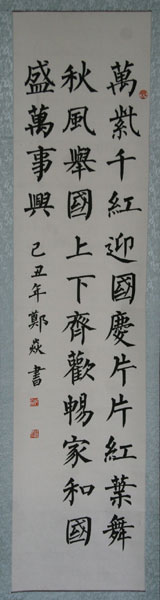 萬紫千紅迎國慶片片紅葉舞
秋風舉國上下齊歡暢家和國
盛萬事興
己丑年鄭焱書